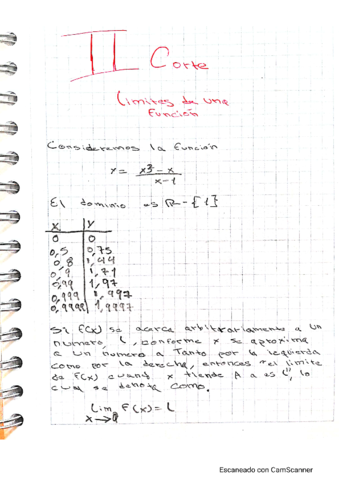 II Corte
Limites de una
Función
Consideremos la función
Y = x³ - x / x - 1
El dominio es R - {1}
X | Y
0 | 0
0,5 | 0,75
0,8 | 1,44
0,9 | 1,71
0,99 | 1,97
0,999 | 1,997
0,9999 | 1,9997
Si f(x) se acerca arbitrariamente a un
numero, L, conforme x se aproxima
a un número a Tanto por la izquierda
como por la derecha, entonces "el limite
de f(x) cuand x tiende A a es L", lo
cual se denota como.
Lim f(x) = L
x → a
Escaneado con CamScanner